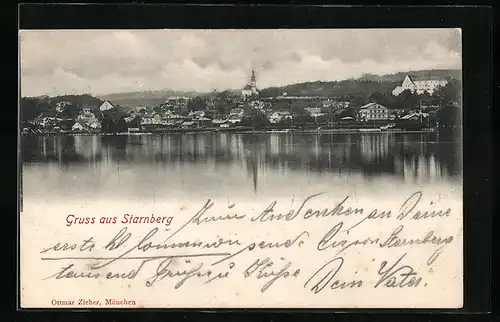 Gruss aus Starnberg
Zum Andenken an Deine
erste hl. Communion send. Dir von Starnberg
tausend Grüße u. Küße
Dein Vater.
Ottmar Zieher, München